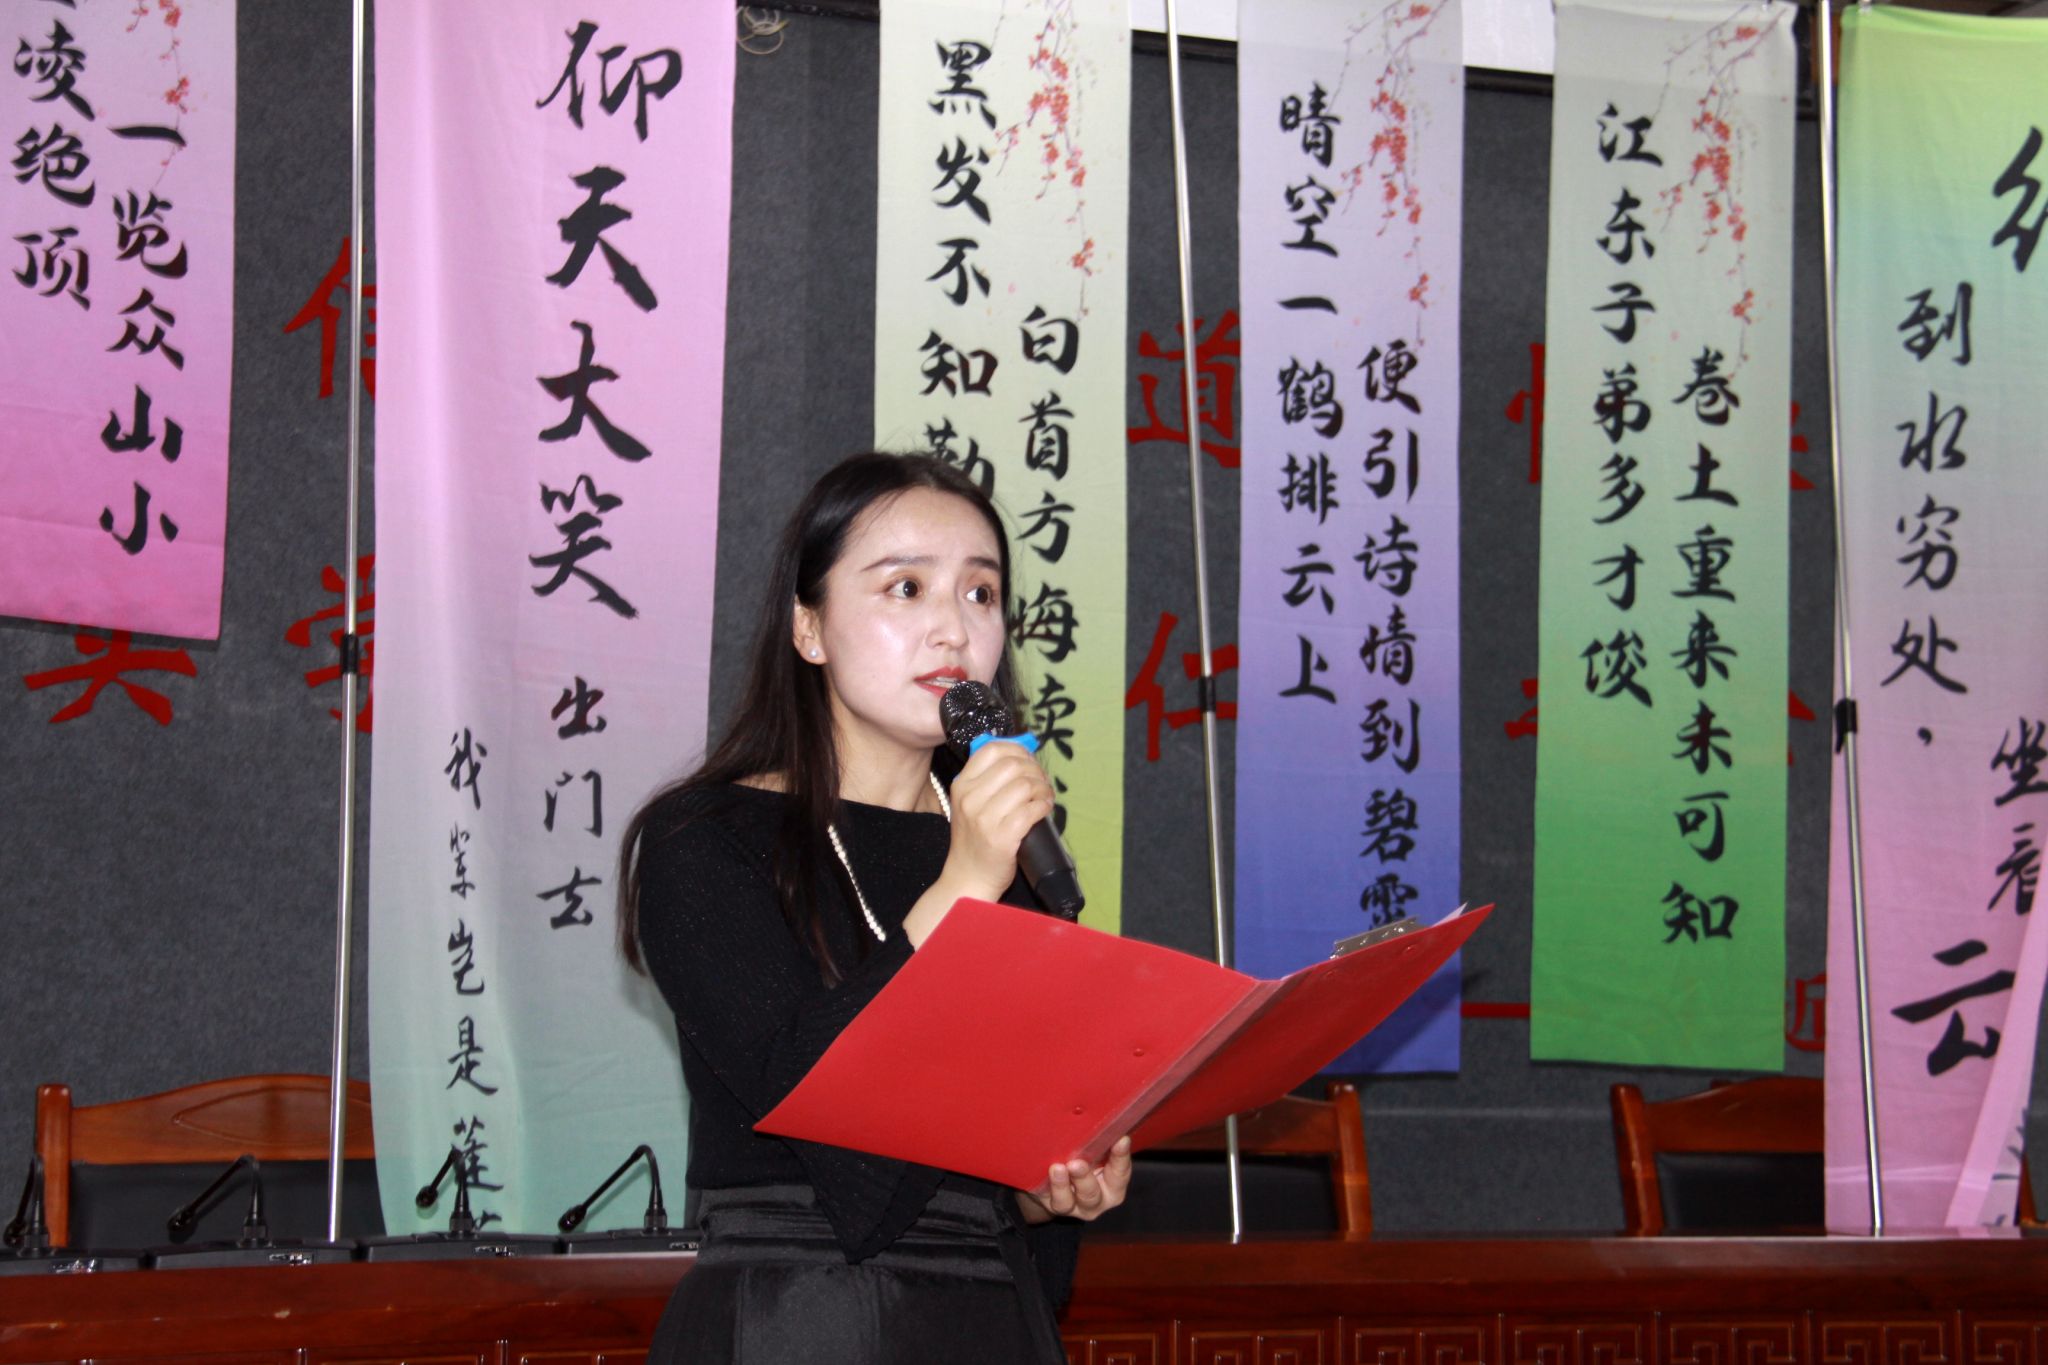 凌绝顶
一览众山小
仰天大笑出门去
我辈岂是蓬
黑发不知勤
白首方悔读
晴空一鹤排云上
便引诗情到碧霄
江东子弟多才俊
卷土重来未可知
到水穷处，
坐看
云
信
学
道
仁